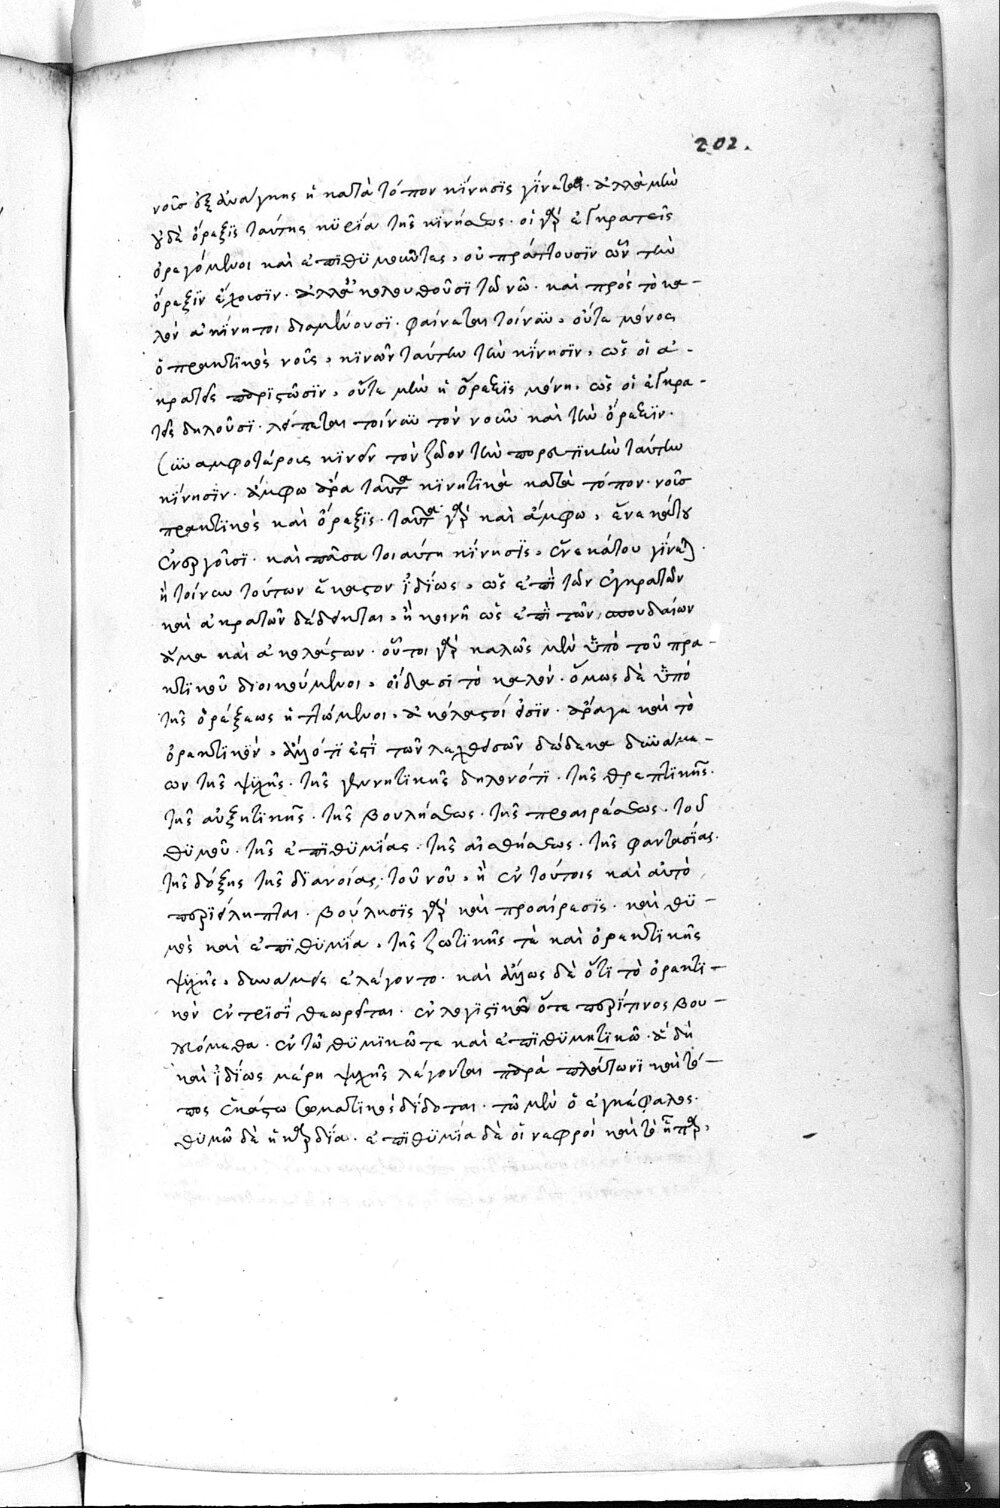 202.
νοῖς ἐξ ἀνάγκης ἡ κατὰ τόπον κίνησϊς γίνεται. ἀλλὰ μὴν
οὐδὲ ὄρεξϊς ταύτης κϋρία τῆς κϊνήσεως. οἱ γὰρ ἐγκρατεῖς
ὀρεγόμενοι καὶ ἐπϊθϋμοῦντες, οὐ πράττουσϊν ὧν τὴν
ὄρεξϊν ἔχουσϊν. ἀλλ' ἀκολουθοῦσϊ τῶ νῶ. καὶ πρὸς τὸ κα-
λὸν ἀκίνητοι διαμένουσϊ. φαίνεται τοίνυν, οὔτε μόνος
ὁ πρακτϊκὸς νοῦς, κϊνῶν ταύτην τὴν κίνησϊν, ὡς οἱ ἀ-
κρατεῖς παρϊστῶσϊν, οὔτε μὴν ἡ ὄρεξϊς μόνη, ὡς οἱ ἐγκρα-
τεῖς δηλοῦσϊ. λείπεται τοίνυν τὸν νοῦν καὶ τὴν ὄρεξϊν.
συναμφοτέροις κϊνεῖν τὸν ζῶον τὴν πορευτϊκὴν ταύτην
κίνησϊν. ἄμφω ἄρα ταῦτα κϊνητϊκὰ κατὰ τόπον. νοῦς
πρακτϊκὸς καὶ ὄρεξϊς. ταῦτα γὰρ καὶ ἄμφω, ἕνεκά του
ἐνεργοῦσϊ. καὶ πᾶσα τοιαύτη κίνησϊς, ἕνεκά του γίνεται.
ἢ τοίνυν τούτων ἕκαστον ἰδίως, ὡς ἐπὶ τῶν ἐγκρατῶν
καὶ ἀκρατῶν δέδεικται, ἢ κοινῆ ὡς ἐπὶ τῶν σπουδαίων
ἅμα καὶ ἀκολάστων. οὗτοι γὰρ καλῶς μὲν ὑπὸ τοῦ πρα-
κτϊκοῦ διοικούμενοι, οἴδασϊ τὸ καλόν. ὅμως δὲ ὑπὸ
τῆς ὀρέξεως ἡττώμενοι, ἀκόλαστοί εἰσϊν. ἆρά γε καὶ τὸ
ὀρεκτϊκόν, ἄλλό τϊ ἐστὶ τῶν λεχθεισῶν δώδεκα δυνάμε-
ων τῆς ψϋχῆς. τῆς γεννητϊκῆς δηλονότϊ. τῆς θρεπτϊκῆς.
τῆς αὐξητϊκῆς. τῆς βουλήσεως. τῆς προαιρέσεως. τοῦ
θϋμοῦ. τῆς ἐπϊθϋμίας. τῆς αἰσθήσεως. τῆς φαντασίας.
τῆς δόξης τῆς δϊανοίας. τοῦ νοῦ, ἢ ἐν τούτοις καὶ αὐτὸ
περϊείληπται. βούλησϊς γὰρ καὶ προαίρεσϊς. καὶ θϋ-
μὸς καὶ ἐπϊθϋμία, τῆς ζωτϊκῆς τὲ καὶ ὀρεκτϊκῆς
ψϋχῆς, δυνάμεις ἐλέγοντο. καὶ ἄλλως δὲ ὅτϊ τὸ ὀρεκτϊ-
κὸν ἐν τρϊσὶ θεωρεῖται. ἐν λογϊστϊκῶ ὅτε περί τϊνος βου-
λόμεθα. ἐν τῶ θϋμϊκῶ τε καὶ ἐπϊθϋμητϊκῶ. ἃ δὴ
καὶ ἰδίως μέρη ψϋχῆς λέγονται παρὰ πλάτωνϊ καὶ τό-
πος ἑκάστω σωματϊκὸς δίδοται. τῶ μὲν ὁ ἐγκέφαλος.
θϋμῶ δὲ ἡ καρδία. ἐπϊθϋμία δὲ οἱ νεφροὶ καὶ τὸ ἧπαρ,